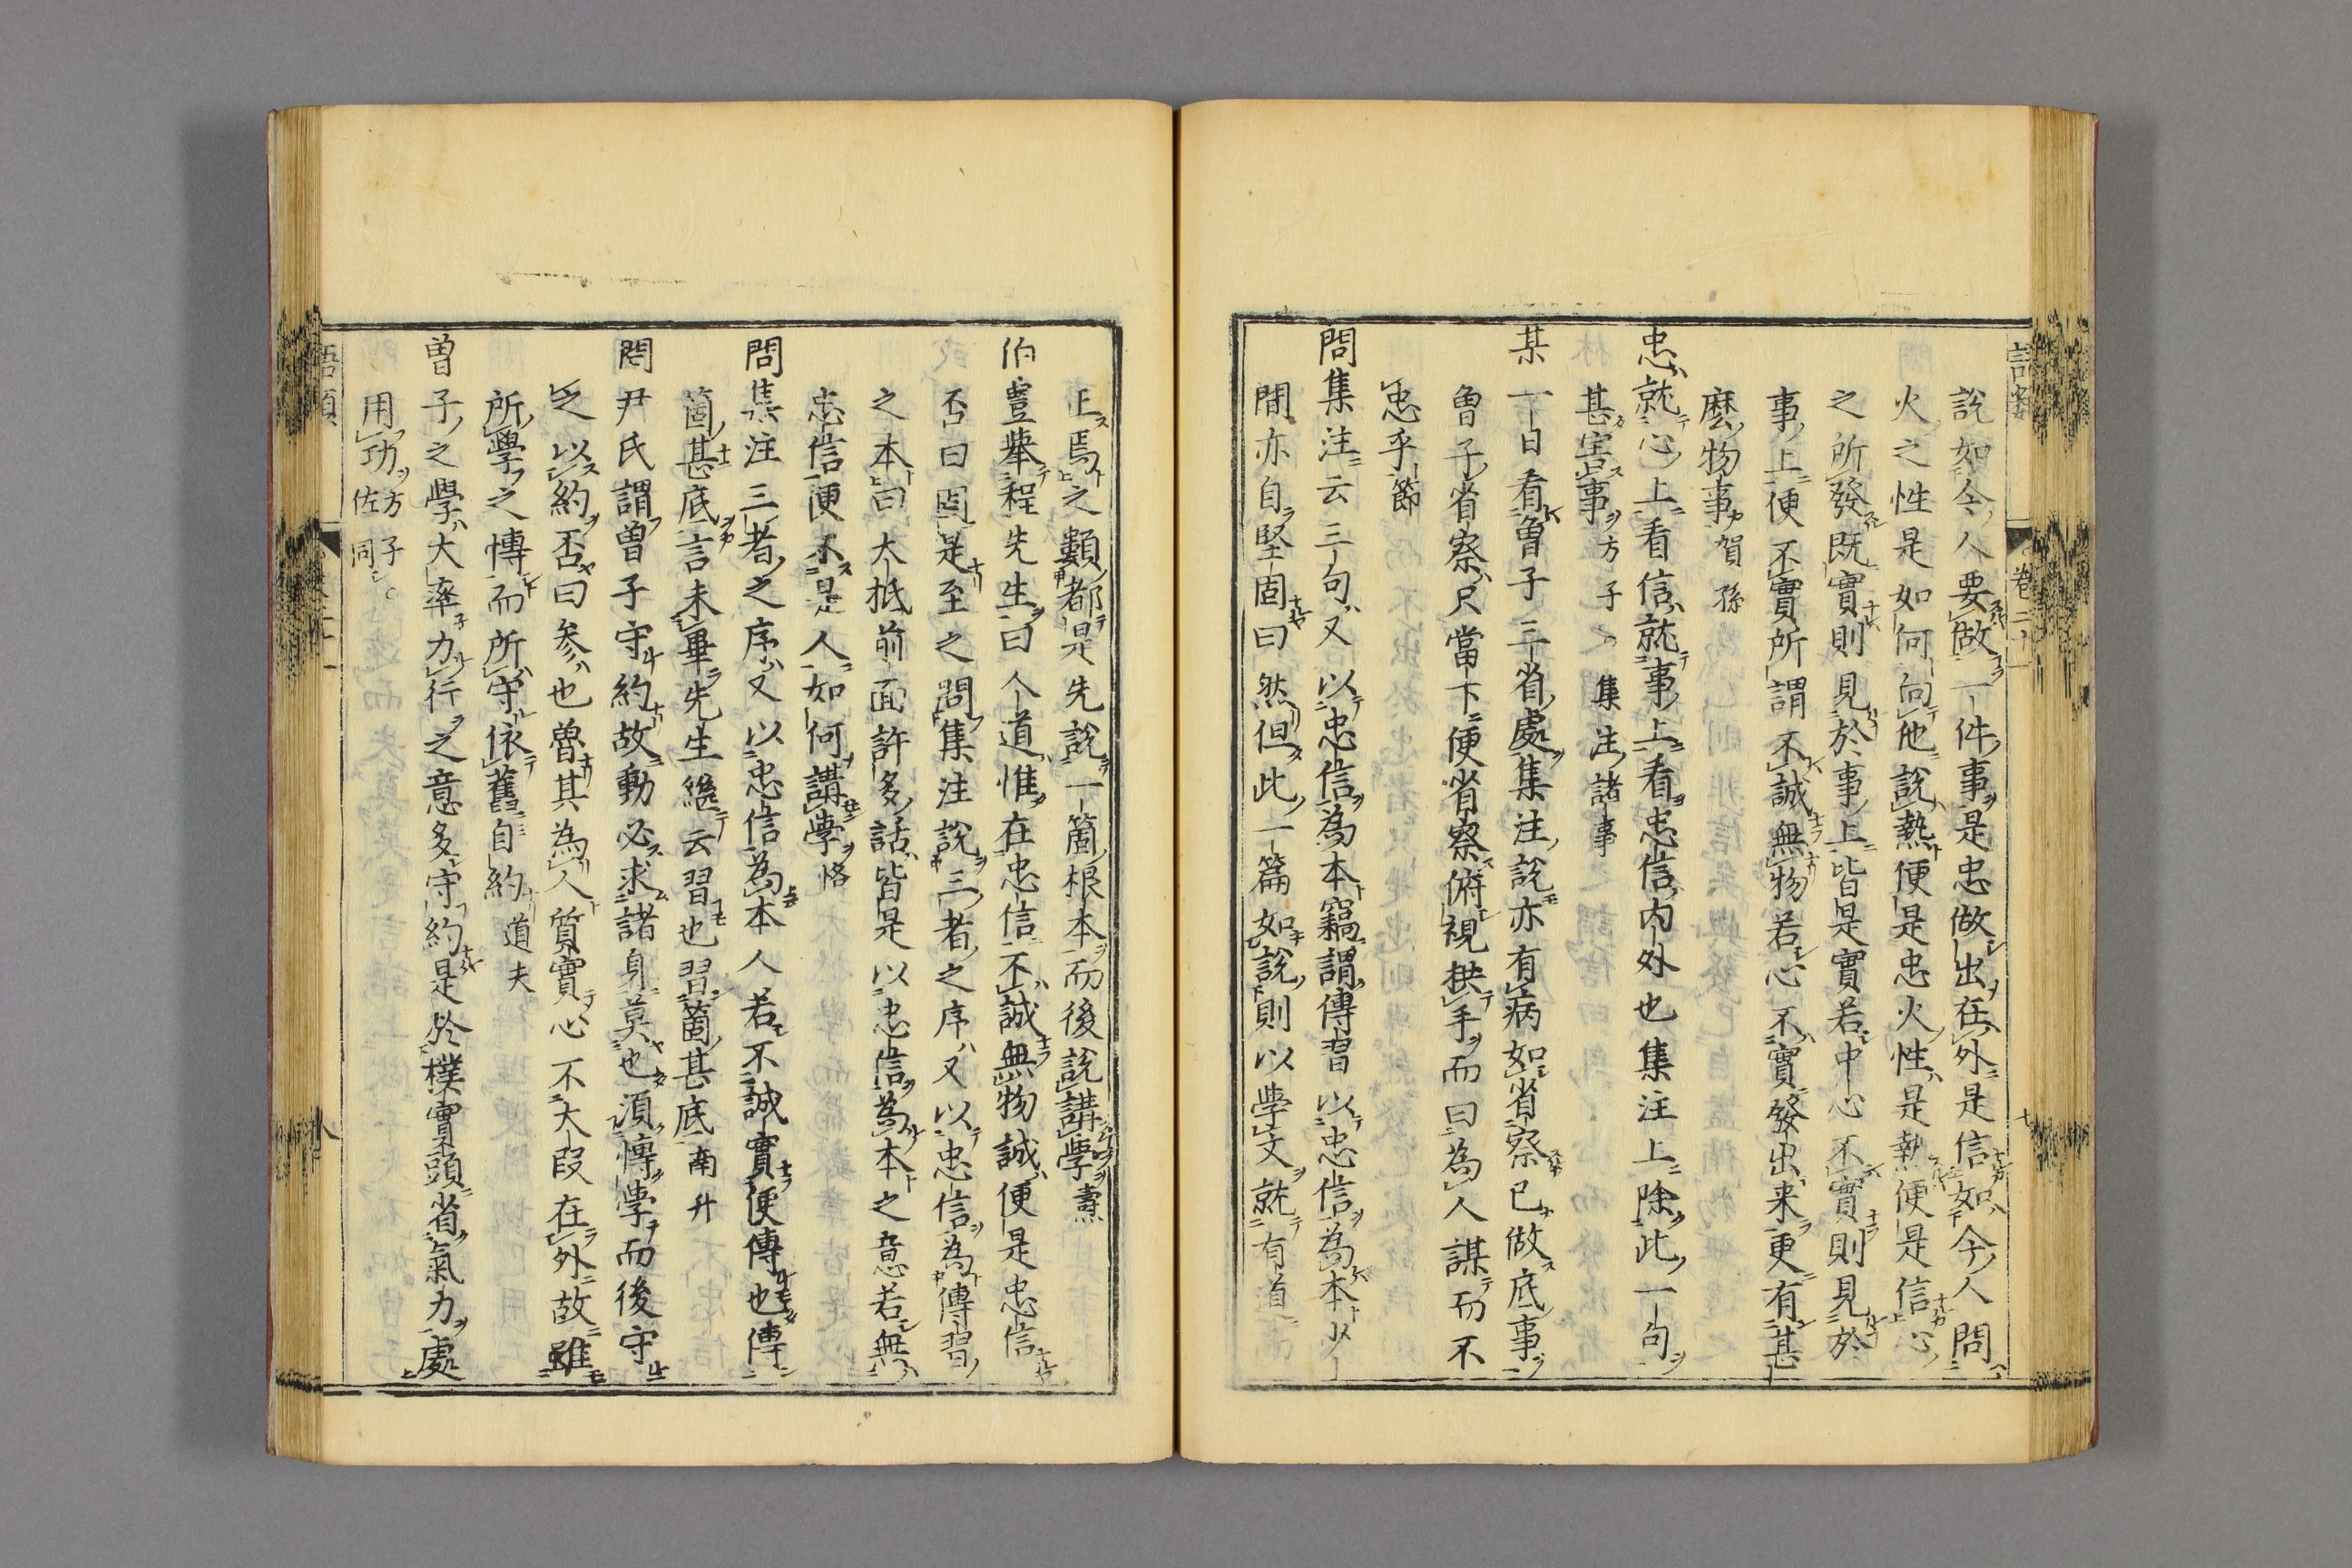 說如今人要做一件事是忠做出在外是信如今人問
火之性是如何向他說熱便是忠火性是熱便是信心
之所發既實則見於事上皆是實若中心不實則見於
事上便不實所謂不誠無物若心不實發出來更有甚
麼物事賀孫
忠就心上看信就事上看忠信内外也集注上除此一句
甚害事方子 集注諸事
某一日看魯子三省處集注說亦有病如省察已做底事
魯子省察只當下便省察俯視拱手而曰為人謀而不
忠乎節
問集注云三句又以忠信為本竊謂傳習以忠信為本少
間亦自堅固曰然但此一篇如說則以學文就有道
正焉之類都是先說一箇根本而後說講學燾
伯豊舉程先生曰人道惟在忠信不誠無物誠便是忠信
否曰固是至之問集注說三者之序又以忠信為傳習
之本曰大抵前面許多話皆是以忠信為本之意若無
忠信便不是人如何講學恪
問集注三者之序又以忠信為本人若不誠實便傳也傳
箇甚底言未畢先生繼云習也習箇甚底南升
問尹氏謂曽子守約故動必求諸身莫也須博學而後守
之以約否曰參也魯其為人質實心不大段在外故雖
所學之博而所守依舊自約道夫
曽子之學大率力行之意多守約是於樸實頭省氣力處
用功佐方子同